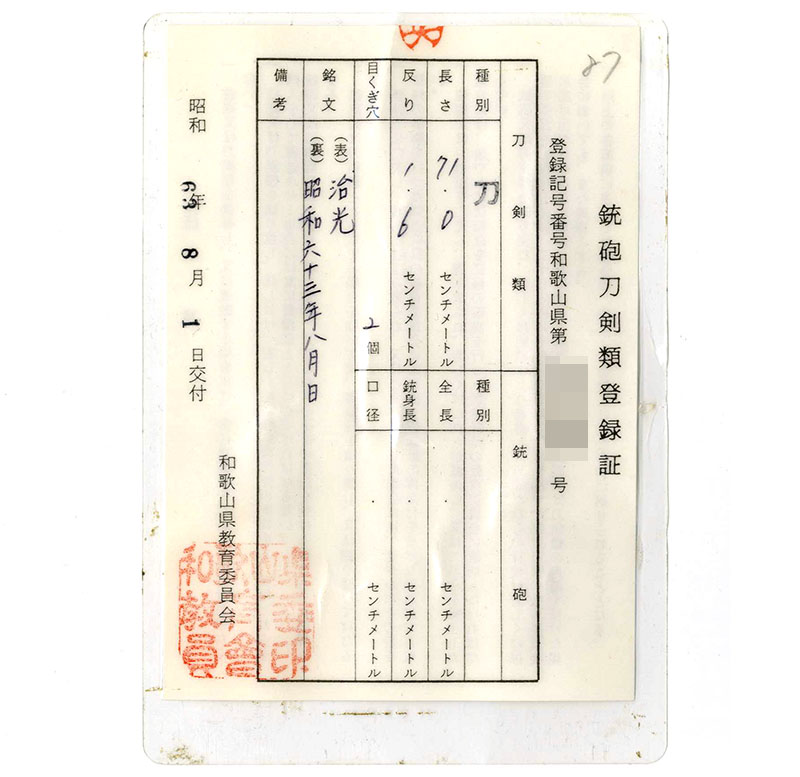 27
銃砲刀剣類登録証
登録記号番号和歌山県第 号
刀剣類
銃砲
種別 刀
種別
長さ 71.0 センチメートル
全長 . センチメートル
反り 1.6 センチメートル
銃身長 . センチメートル
目くぎ穴 2個
口径 センチメートル
銘文 (表) 治光
(裏) 昭和六十三年八月日
備考
昭和63年8月1日交付
和歌山県教育委員会